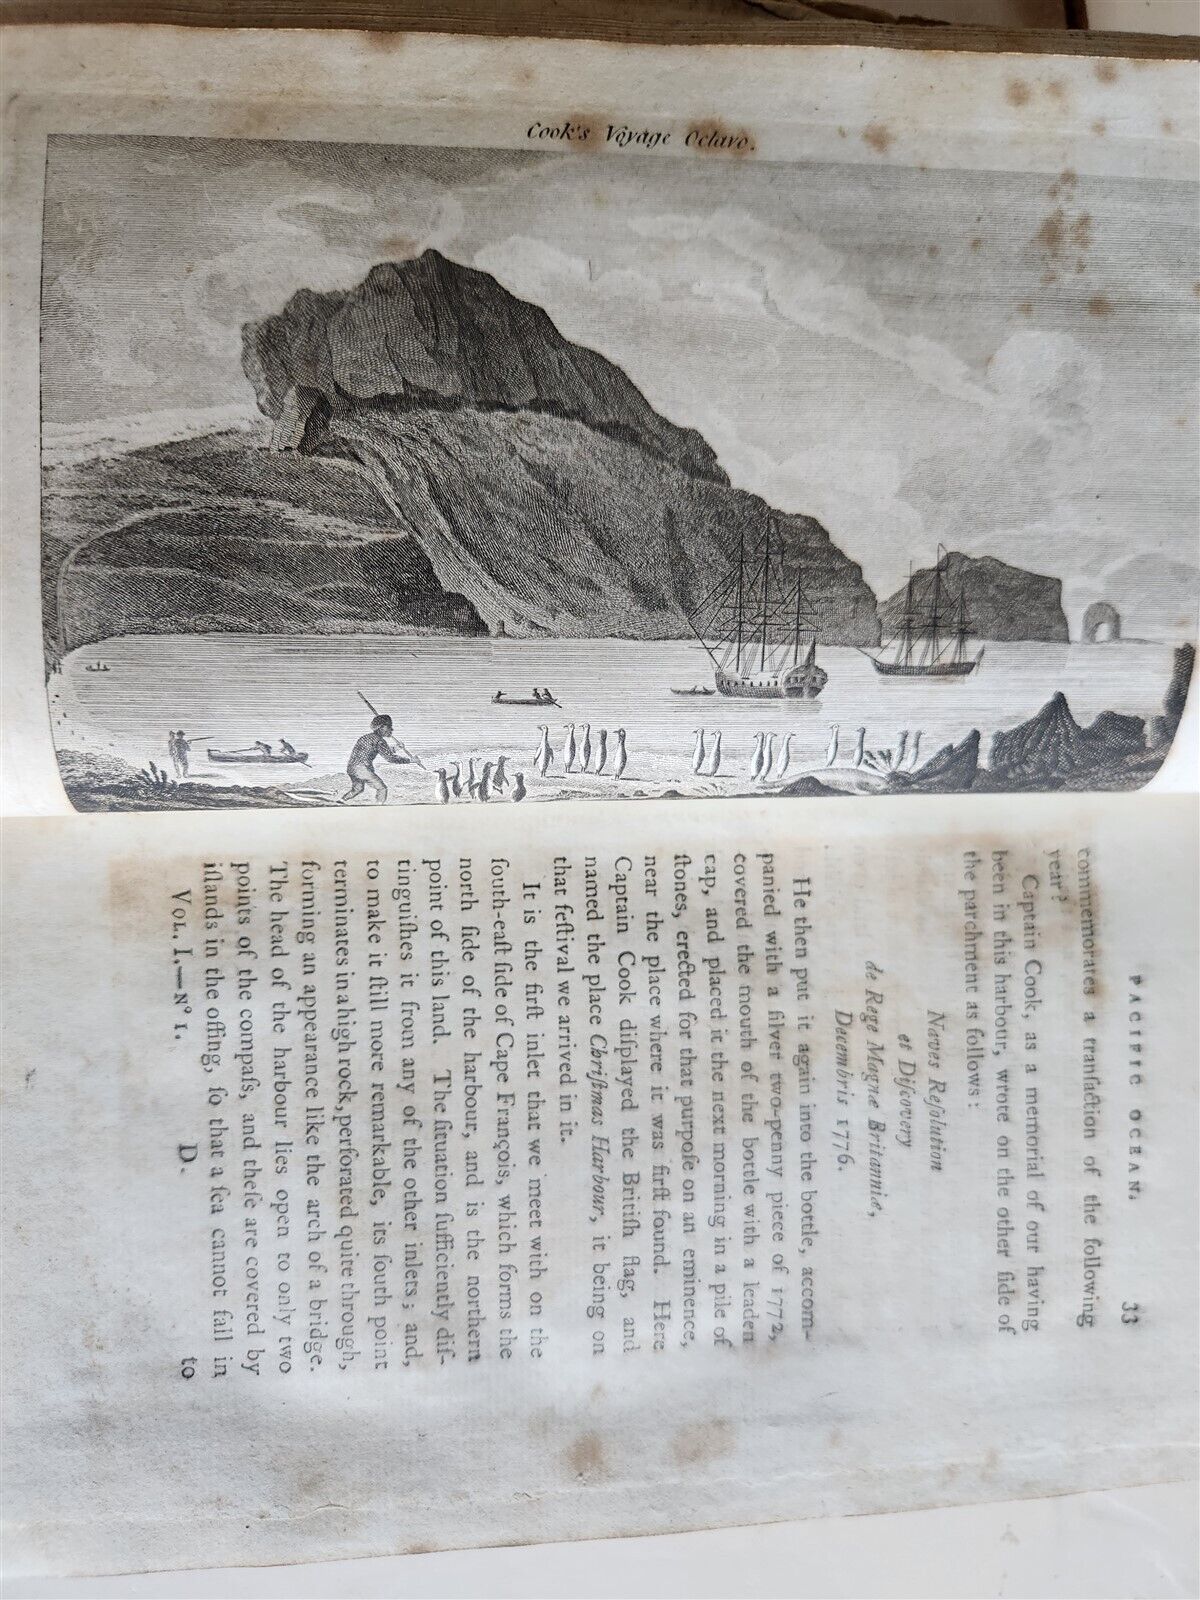 Cook's Voyage Octavo.
PACIFIC OCEAN. 33
commemorates a tranſaction of the following
year?
Captain Cook, as a memorial of our having
been in this harbour, wrote on the other ſide of
the parchment as follows:
Naves Reſolution
et Diſcovery
de Rege Magnæ Britanniæ,
Decembris 1776.
He then put it again into the bottle, accom-
panied with a ſilver two-penny piece of 1772,
covered the mouth of the bottle with a leaden
cap, and placed it the next morning in a pile of
ſtones, erected for that purpoſe on an eminence,
near the place where it was firſt found. Here
Captain Cook diſplayed the Britiſh flag, and
named the place Chriſtmas Harbour, it being on
that feſtival we arrived in it.
It is the firſt inlet that we meet with on the
ſouth-eaſt ſide of Cape François, which forms the
north ſide of the harbour, and is the northern
point of this land. The ſituation ſufficiently diſ-
tinguiſhes it from any of the other inlets; and,
to make it ſtill more remarkable, its ſouth point
terminates in a high rock, perforated quite through,
forming an appearance like the arch of a bridge.
The head of the harbour lies open to only two
points of the compaſs, and theſe are covered by
iſlands in the offing, ſo that a ſea cannot fall in
VOL. I.—Nº 1. D to